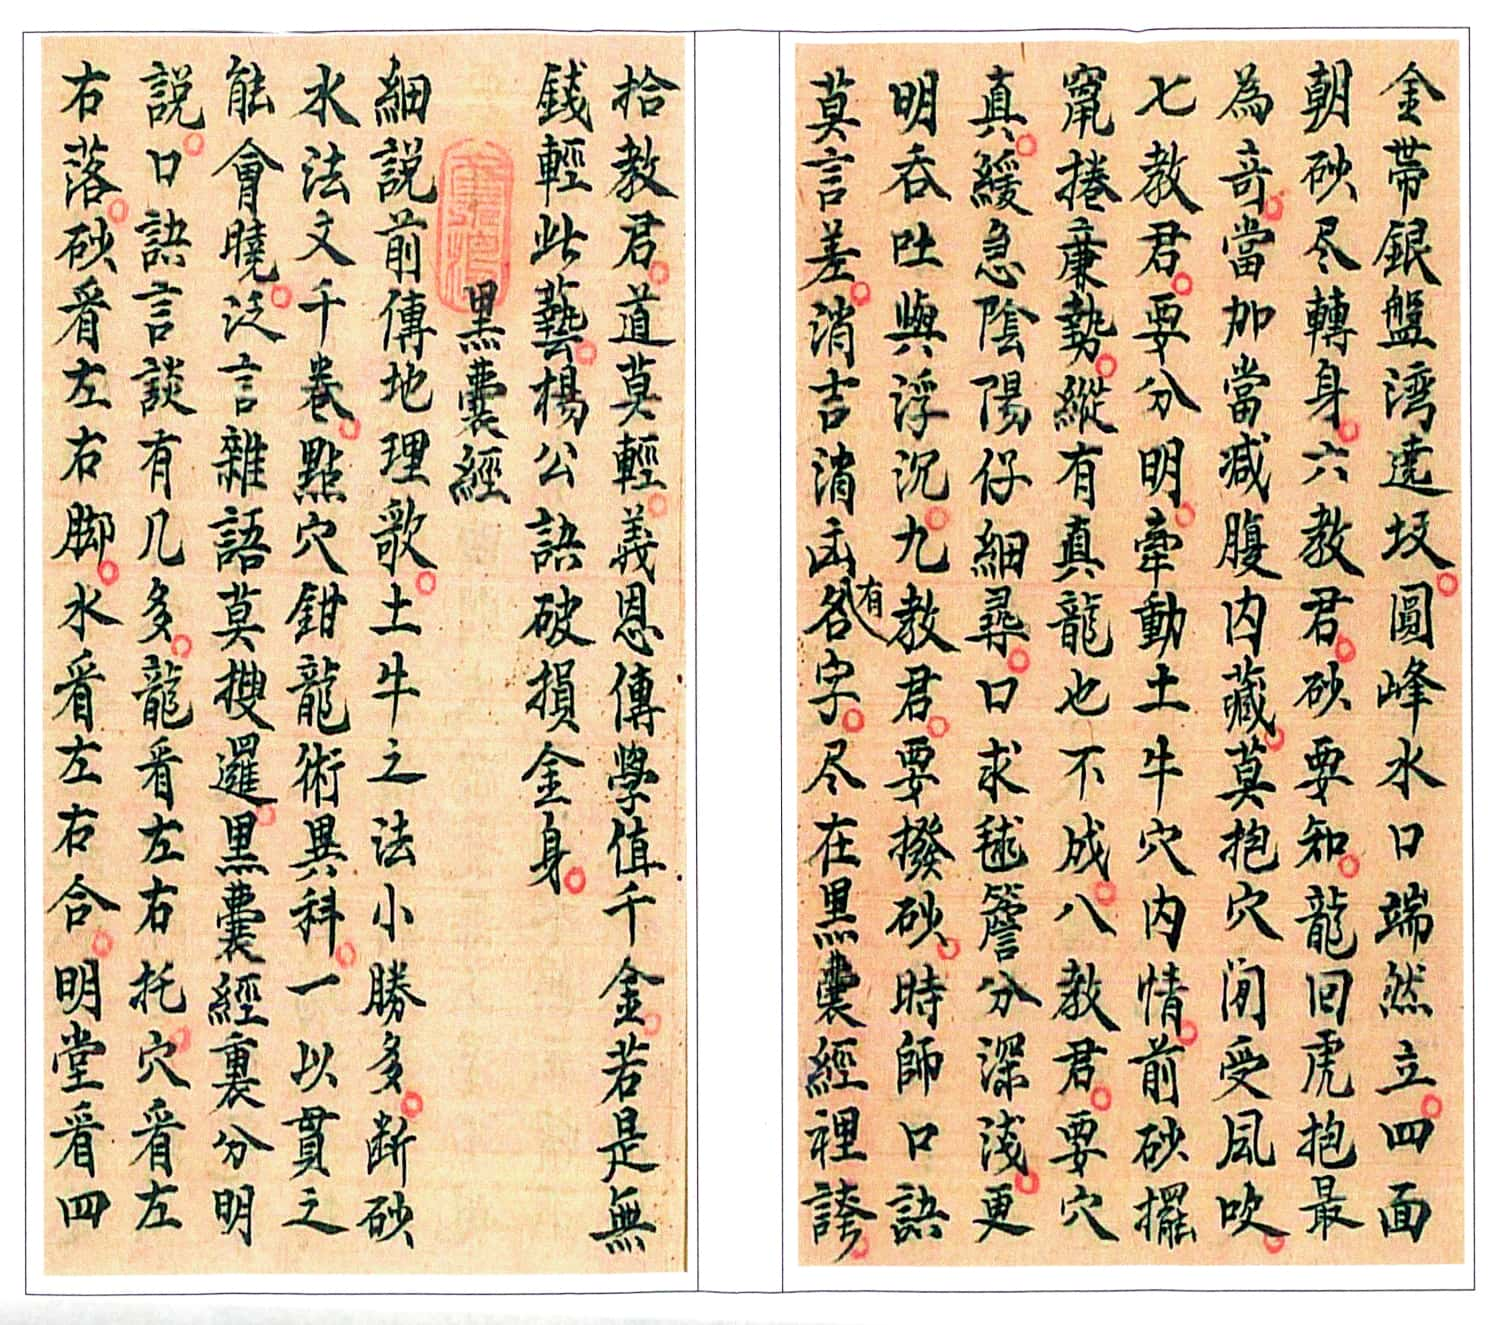 金帶銀盤湾遶坟圓峰水口端然立四面
朝砂尽轉身六教君砂要知龍回虎抱最
為竒當加當减腹内藏莫抱穴閒受風吹
七教君要分明牽動土牛穴内情前砂擺
竄捲簾勢縱有真龍也不成八教君要穴
真緩急陰陽仔細尋口求毬簷分深淺更
明吞吐與浮沉九教君要撥砂時師口訣
莫言差消吉消凶各有字尽在黑囊經裡誇
拾教君道莫輕義恩傳學值千金若是無
錢輕此藝楊公訣破損金身
黑囊經
細說前傳地理歌土牛之法小勝多断砂
水法文千卷點穴鉗龍術異科一以貫之
能會曉泛言雜語莫搜邏黑囊經裏分明
説口訣言談有几多龍看左右托穴看左
右落砂看左右脚水看左右合明堂看四